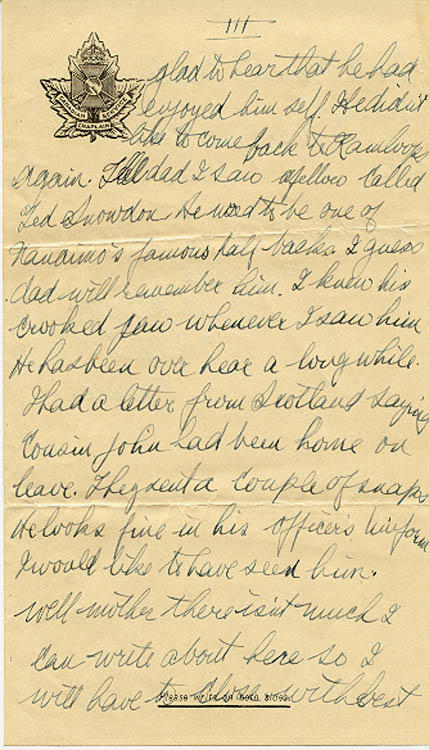 III
CANADIAN CHAPLAIN SERVICE
glad to hear that he had
enjoyed him self. He didn't
like to come back to Kamloops
Again. Tell dad I saw a fellow called
Ted Snowdon. He used to be one of
Nanaimo's famous half backs. I guess
dad will remember him. I knew his
crooked jaw whenever I saw him
He has been over hear a long while.
I had a letter from Scotland saying
Cousin John had been home on
leave. They sent a couple of snaps
He looks fine in his officers Uniform
I would like to have seen him.
well mother there isn't much I
can write about here so I
will have to close with best
Please write on both sides